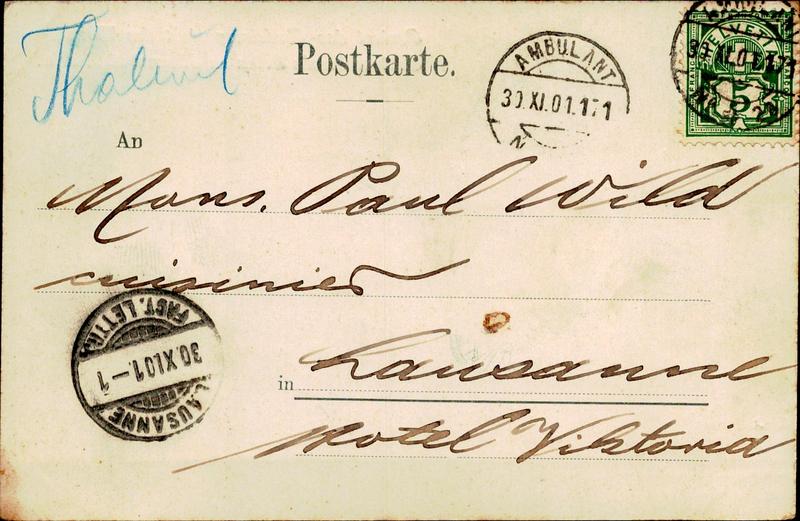 Thalwil
Postkarte.
AMBULANT
30.XI.01.171
HELVETIA
FRANCO
5
An
Mons. Paul Wild
cuisinier
FACT. LETTR.
30.XI.01.-1
LAUSANNE
in
Lausanne
Hotel Viktoria